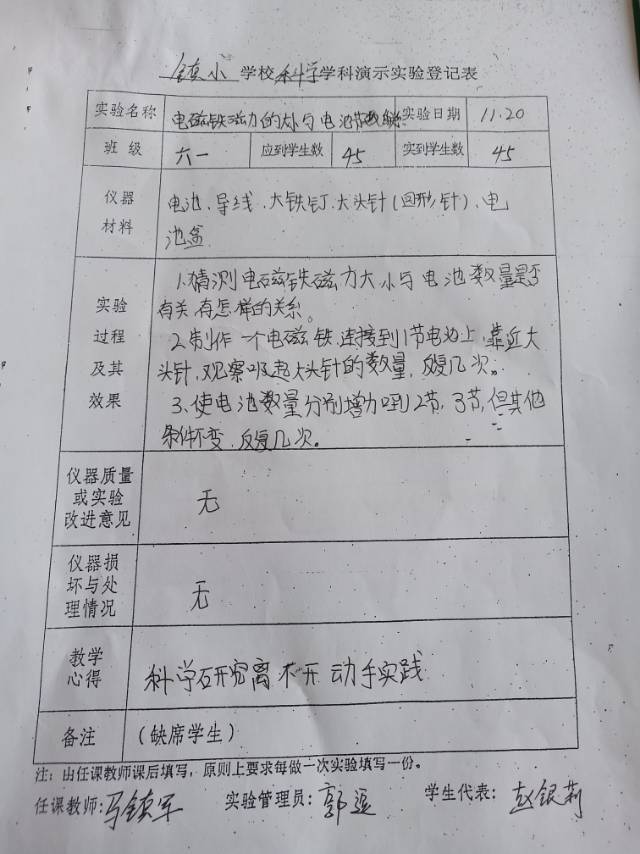 镇小学校科学学科演示实验登记表
实验名称 电磁铁磁力的大小与电池节数的关系 实验日期 11.20
班级 六一 应到学生数 45 实到学生数 45
仪器 电池、导线、大铁钉、大头针(回形针)、电
材料 池盒
1.猜测电磁铁磁力大小与电池数量是否
实验 有关,有怎样的关系。
过程 2.制作一个电磁铁,连接到1节电池上,靠近大
及其 头针,观察吸起大头针的数量,反复几次。
效果 3、使电池数量分别增加到2节,3节,但其他
条件不变,反复几次。
仪器质量
或实验 无
改进意见
仪器损
坏与处 无
理情况
教学 科学研究离不开动手实践
心得
备注 (缺席学生)
注:由任课教师课后填写,原则上要求每做一次实验填写一份。
任课教师:马镇军 实验管理员:郭 学生代表:赵银莉